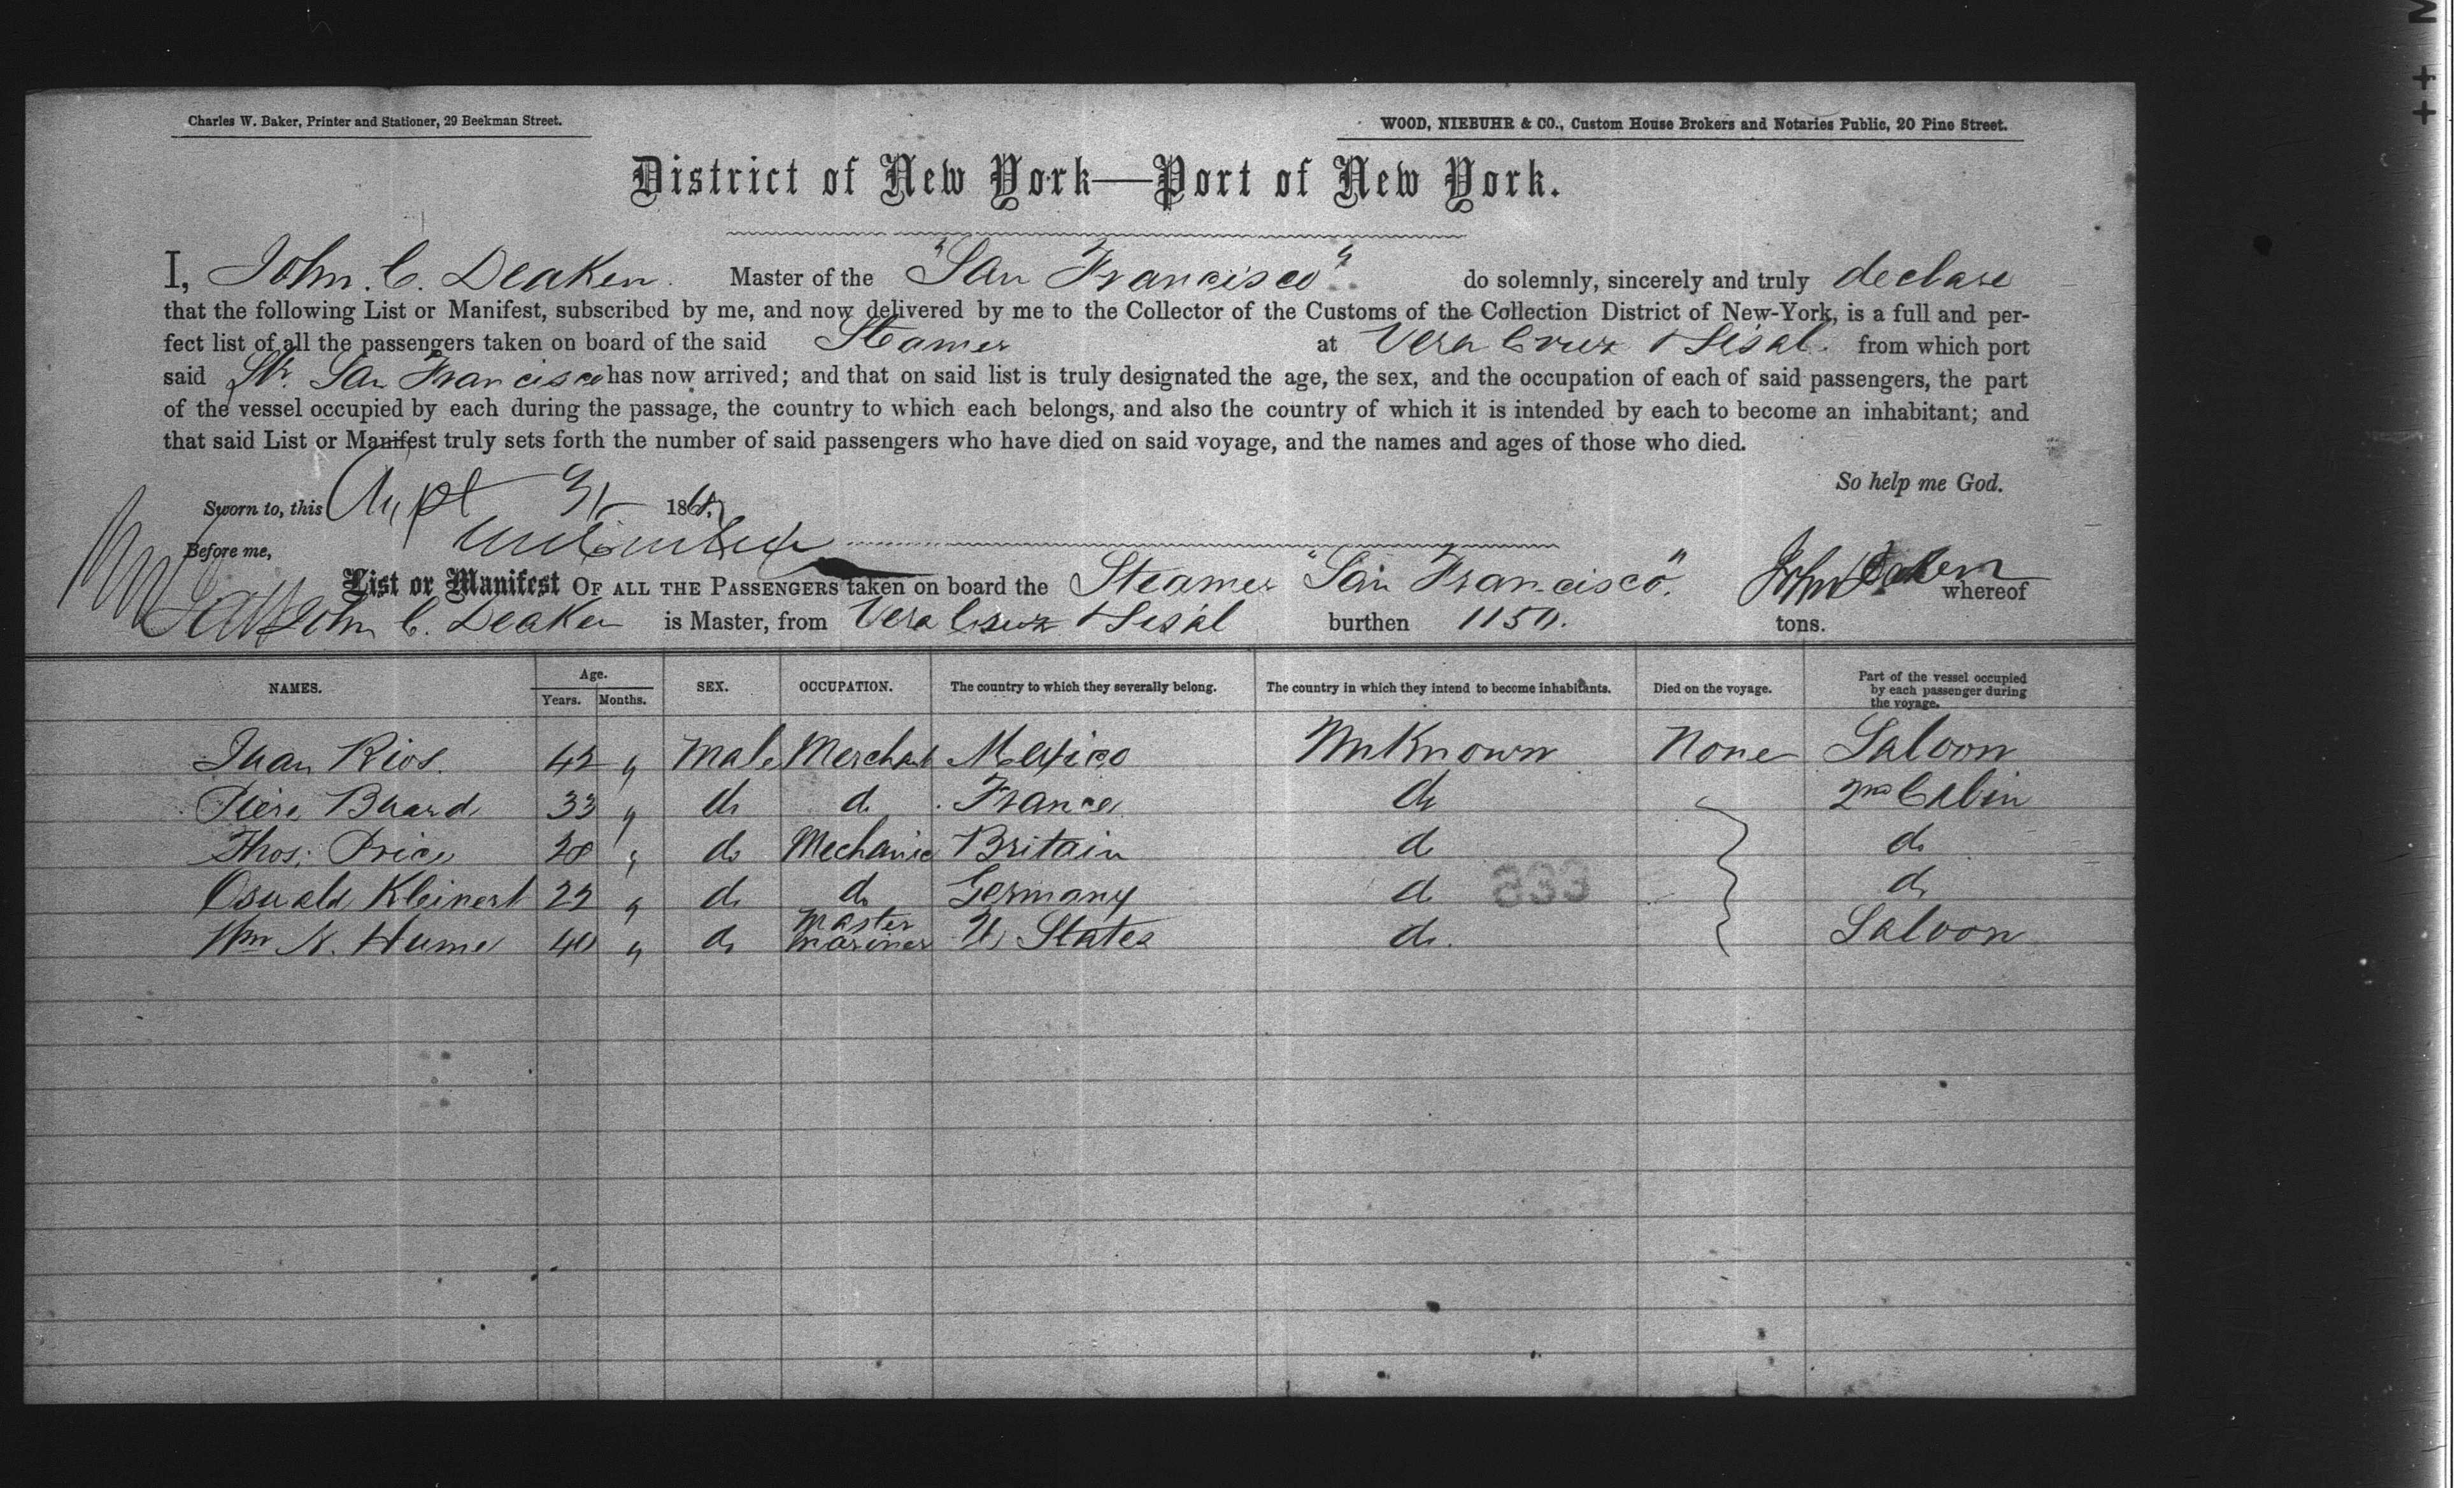 Charles W. Baker, Printer and Stationer, 29 Beekman Street.
WOOD, NIEBUHR & CO., Custom House Brokers and Notaries Public, 20 Pine Street.
District of New York—Port of New York.
I, John. C. Deaken. Master of the "San Francisco" do solemnly, sincerely and truly declare
that the following List or Manifest, subscribed by me, and now delivered by me to the Collector of the Customs of the Collection District of New-York, is a full and per-
fect list of all the passengers taken on board of the said Steamer at Vera Cruz & Sisal. from which port
said Str. San Francisco has now arrived; and that on said list is truly designated the age, the sex, and the occupation of each of said passengers, the part
of the vessel occupied by each during the passage, the country to which each belongs, and also the country of which it is intended by each to become an inhabitant; and
that said List or Manifest truly sets forth the number of said passengers who have died on said voyage, and the names and ages of those who died.
So help me God.
Sworn to, this 31 186
Before me,
List or Manifest OF ALL THE PASSENGERS taken on board the Steamer "San Francisco". whereof
John C. Deaken is Master, from Vera Cruz & Sisal burthen 1150. tons.
NAMES. Age. Years. Months. SEX. OCCUPATION. The country to which they severally belong. The country in which they intend to become inhabitants. Died on the voyage. Part of the vessel occupied by each passenger during the voyage.
Juan Rios. 42 " Male Merchant Mexico Unknown None Saloon
33 " do do France do 2nd Cabin
Thos. Price 28 " do Mechanic Britain do do
Oswald Kleinert 22 " do do Germany do do
Wm N. Hume 40 " do Master Mariner U States do. Saloon